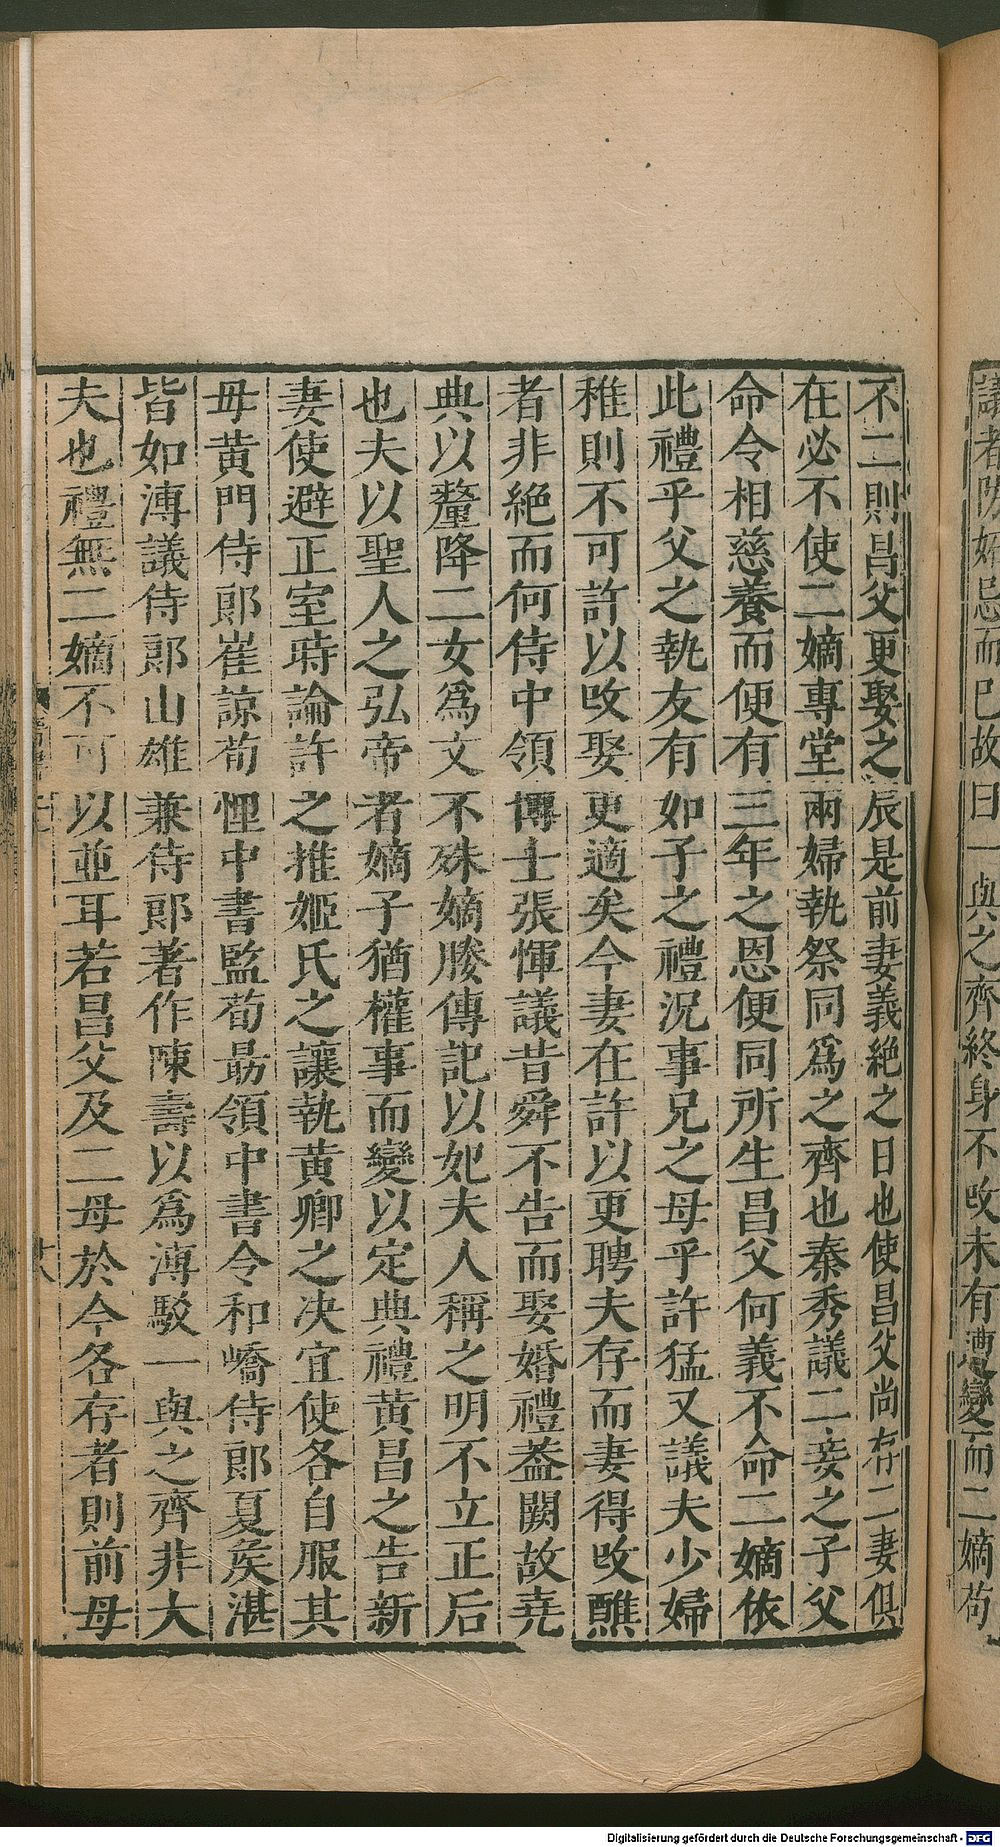 議者防妬忌而已故曰一與之齊終身不改未有遭變而二嫡苟
不二則昌父更娶之辰是前妻義絕之日也使昌父尚存二妻俱
在必不使二嫡專堂兩婦執祭同爲之齊也秦秀議二妾之子父
命令相慈養而便有三年之恩便同所生昌父何義不命二嫡依
此禮乎父之執友有如子之禮況事兄之母乎許猛又議夫少婦
稚則不可許以改娶更適矣今妻在許以更聘夫存而妻得改醮
者非絕而何侍中領博士張惲議昔舜不告而娶婚禮蓋闕故堯
典以釐降二女爲文不殊嫡媵傳記以妃夫人稱之明不立正后
也夫以聖人之弘帝者嫡子猶權事而變以定典禮黃昌之告新
妻使避正室時論許之推姬氏之讓執黃卿之決宜使各自服其
母黃門侍郎崔諒荀悝中書監荀勗領中書令和嶠侍郎夏侯湛
皆如溥議侍郎山雄兼侍郎著作陳壽以爲溥駁一與之齊非大
夫也禮無二嫡不可以並耳若昌父及二母於今各存者則前母
十八
Digitalisierung gefördert durch die Deutsche Forschungsgemeinschaft - DFG